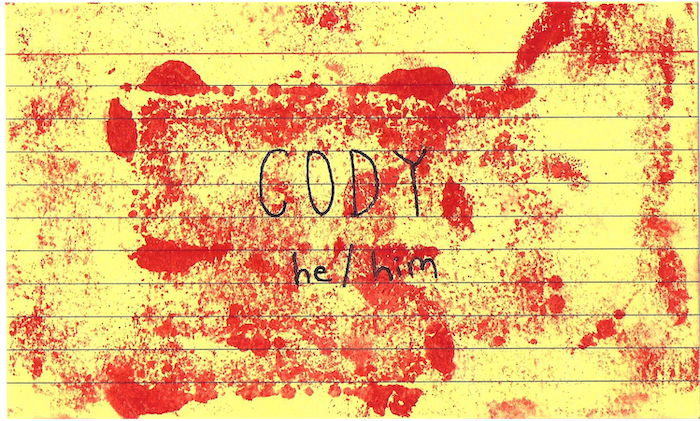 CODY
he / him